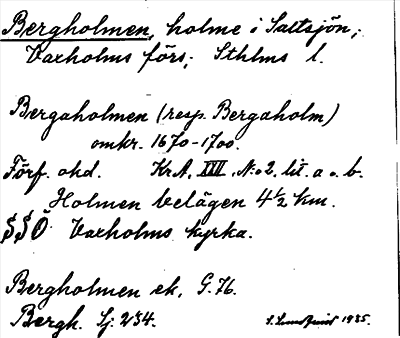 Bergholmen, holme i Saltsjön,
Vaxholms förs; Sthlms l.
Bergaholmen (resp. Bergaholm)
omkr. 1670-1700.
Förf. okd. Kr.A, XVII, N:o 2, lit. a o. b.
Holmen belägen 4½ km.
SSÖ Vaxholms kyrka.
Bergholmen ek, G. 76.
Bergh. Sj. 234.
S. Lundquist 1935.